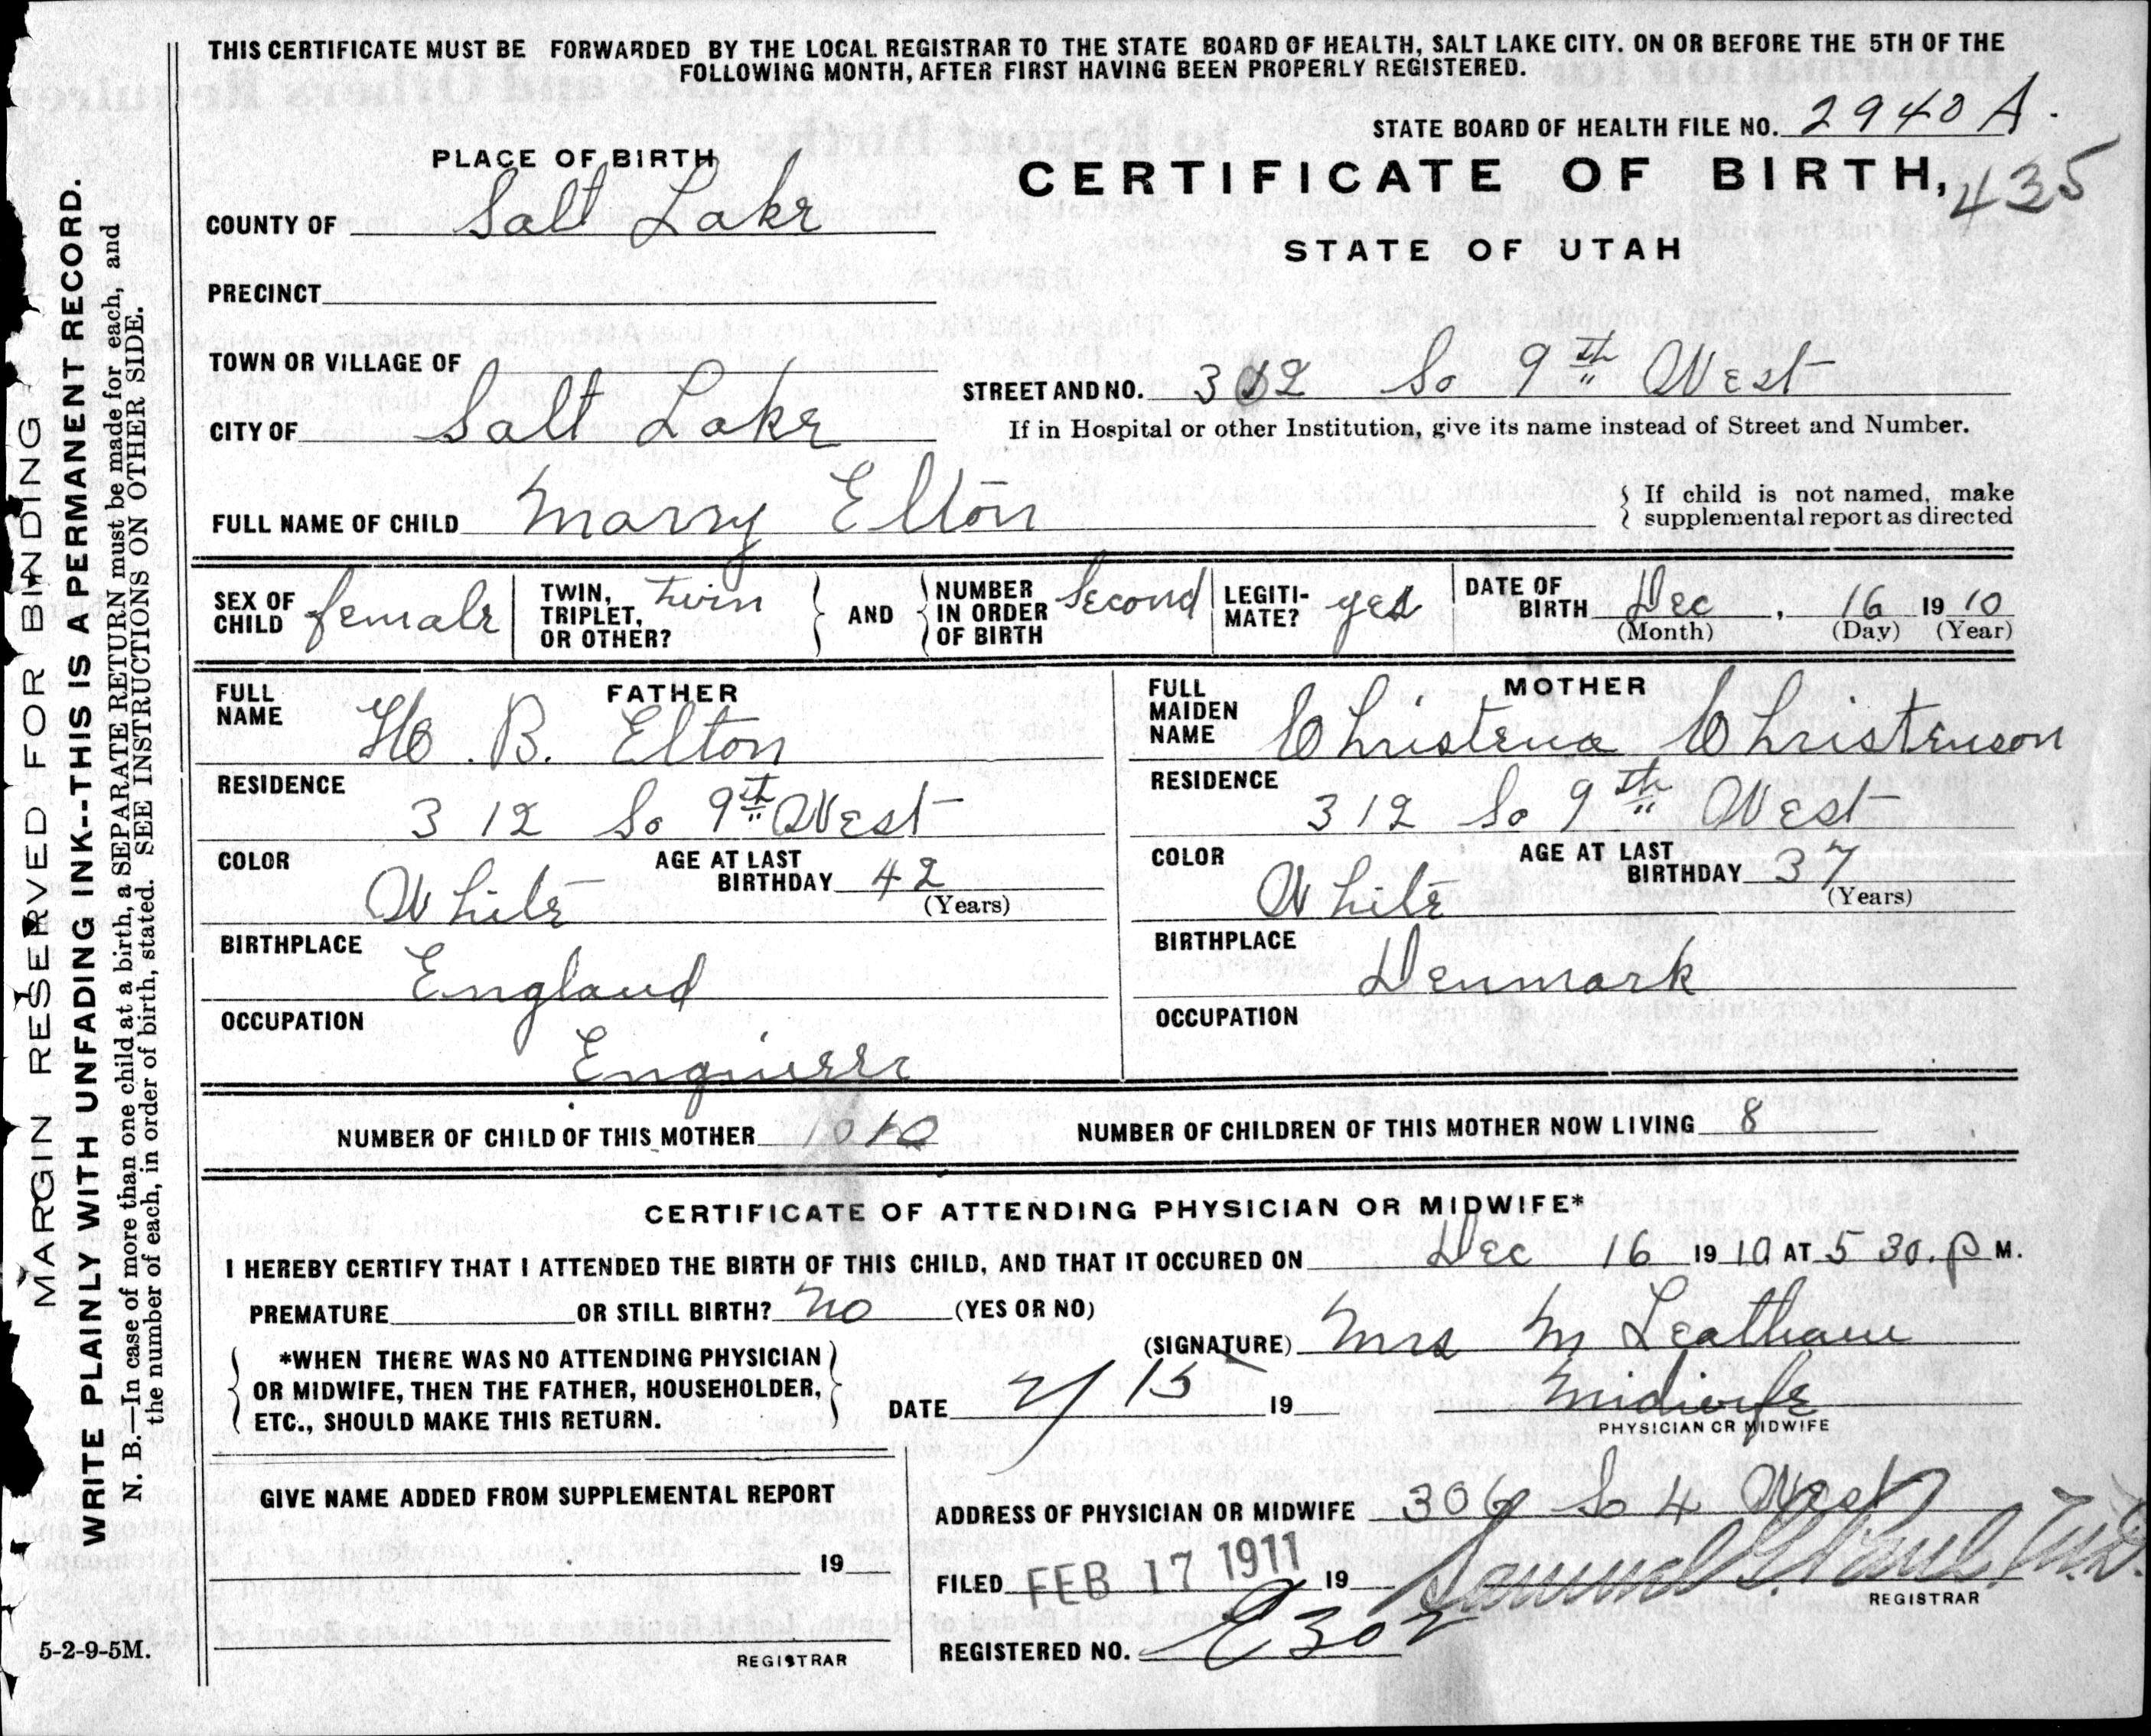 THIS CERTIFICATE MUST BE FORWARDED BY THE LOCAL REGISTRAR TO THE STATE BOARD OF HEALTH, SALT LAKE CITY. ON OR BEFORE THE 5TH OF THE
FOLLOWING MONTH, AFTER FIRST HAVING BEEN PROPERLY REGISTERED.
STATE BOARD OF HEALTH FILE NO. 2940 A.
PLACE OF BIRTH
CERTIFICATE OF BIRTH,
435
COUNTY OF Salt Lake
STATE OF UTAH
PRECINCT
TOWN OR VILLAGE OF
STREET AND NO. 312 So 9th West
CITY OF Salt Lake
If in Hospital or other Institution, give its name instead of Street and Number.
FULL NAME OF CHILD Marry Elton
{ If child is not named, make
supplemental report as directed
SEX OF CHILD female
TWIN, TRIPLET, OR OTHER? Twin
} AND {
NUMBER IN ORDER OF BIRTH Second
LEGITI- MATE? yes
DATE OF BIRTH Dec, 16 1910
(Month) (Day) (Year)
FATHER
FULL NAME H. B. Elton
RESIDENCE
312 So 9th West
COLOR White
AGE AT LAST BIRTHDAY 42
(Years)
BIRTHPLACE
England
OCCUPATION
Engineer
MOTHER
FULL MAIDEN NAME Christena Christenson
RESIDENCE
312 So 9th West
COLOR White
AGE AT LAST BIRTHDAY 37
(Years)
BIRTHPLACE
Denmark
OCCUPATION
NUMBER OF CHILD OF THIS MOTHER 10 10 NUMBER OF CHILDREN OF THIS MOTHER NOW LIVING 8
CERTIFICATE OF ATTENDING PHYSICIAN OR MIDWIFE*
I HEREBY CERTIFY THAT I ATTENDED THE BIRTH OF THIS CHILD, AND THAT IT OCCURED ON Dec 16 1910 AT 5 30. P M.
PREMATURE OR STILL BIRTH? no (YES OR NO)
(SIGNATURE) Mrs M Leatham
{ *WHEN THERE WAS NO ATTENDING PHYSICIAN
OR MIDWIFE, THEN THE FATHER, HOUSEHOLDER,
ETC., SHOULD MAKE THIS RETURN. }
DATE 2/15 19
Midwife
PHYSICIAN OR MIDWIFE
GIVE NAME ADDED FROM SUPPLEMENTAL REPORT
19
REGISTRAR
ADDRESS OF PHYSICIAN OR MIDWIFE 306 So 4 West
FILED FEB 17 1911 19 Samuel G. Paul, M.D.
REGISTRAR
REGISTERED NO. E 302
MARGIN RESERVED FOR BINDING
WRITE PLAINLY WITH UNFADING INK--THIS IS A PERMANENT RECORD.
N. B.—In case of more than one child at a birth, a SEPARATE RETURN must be made for each, and
the number of each, in order of birth, stated. SEE INSTRUCTIONS ON OTHER SIDE.
5-2-9-5M.